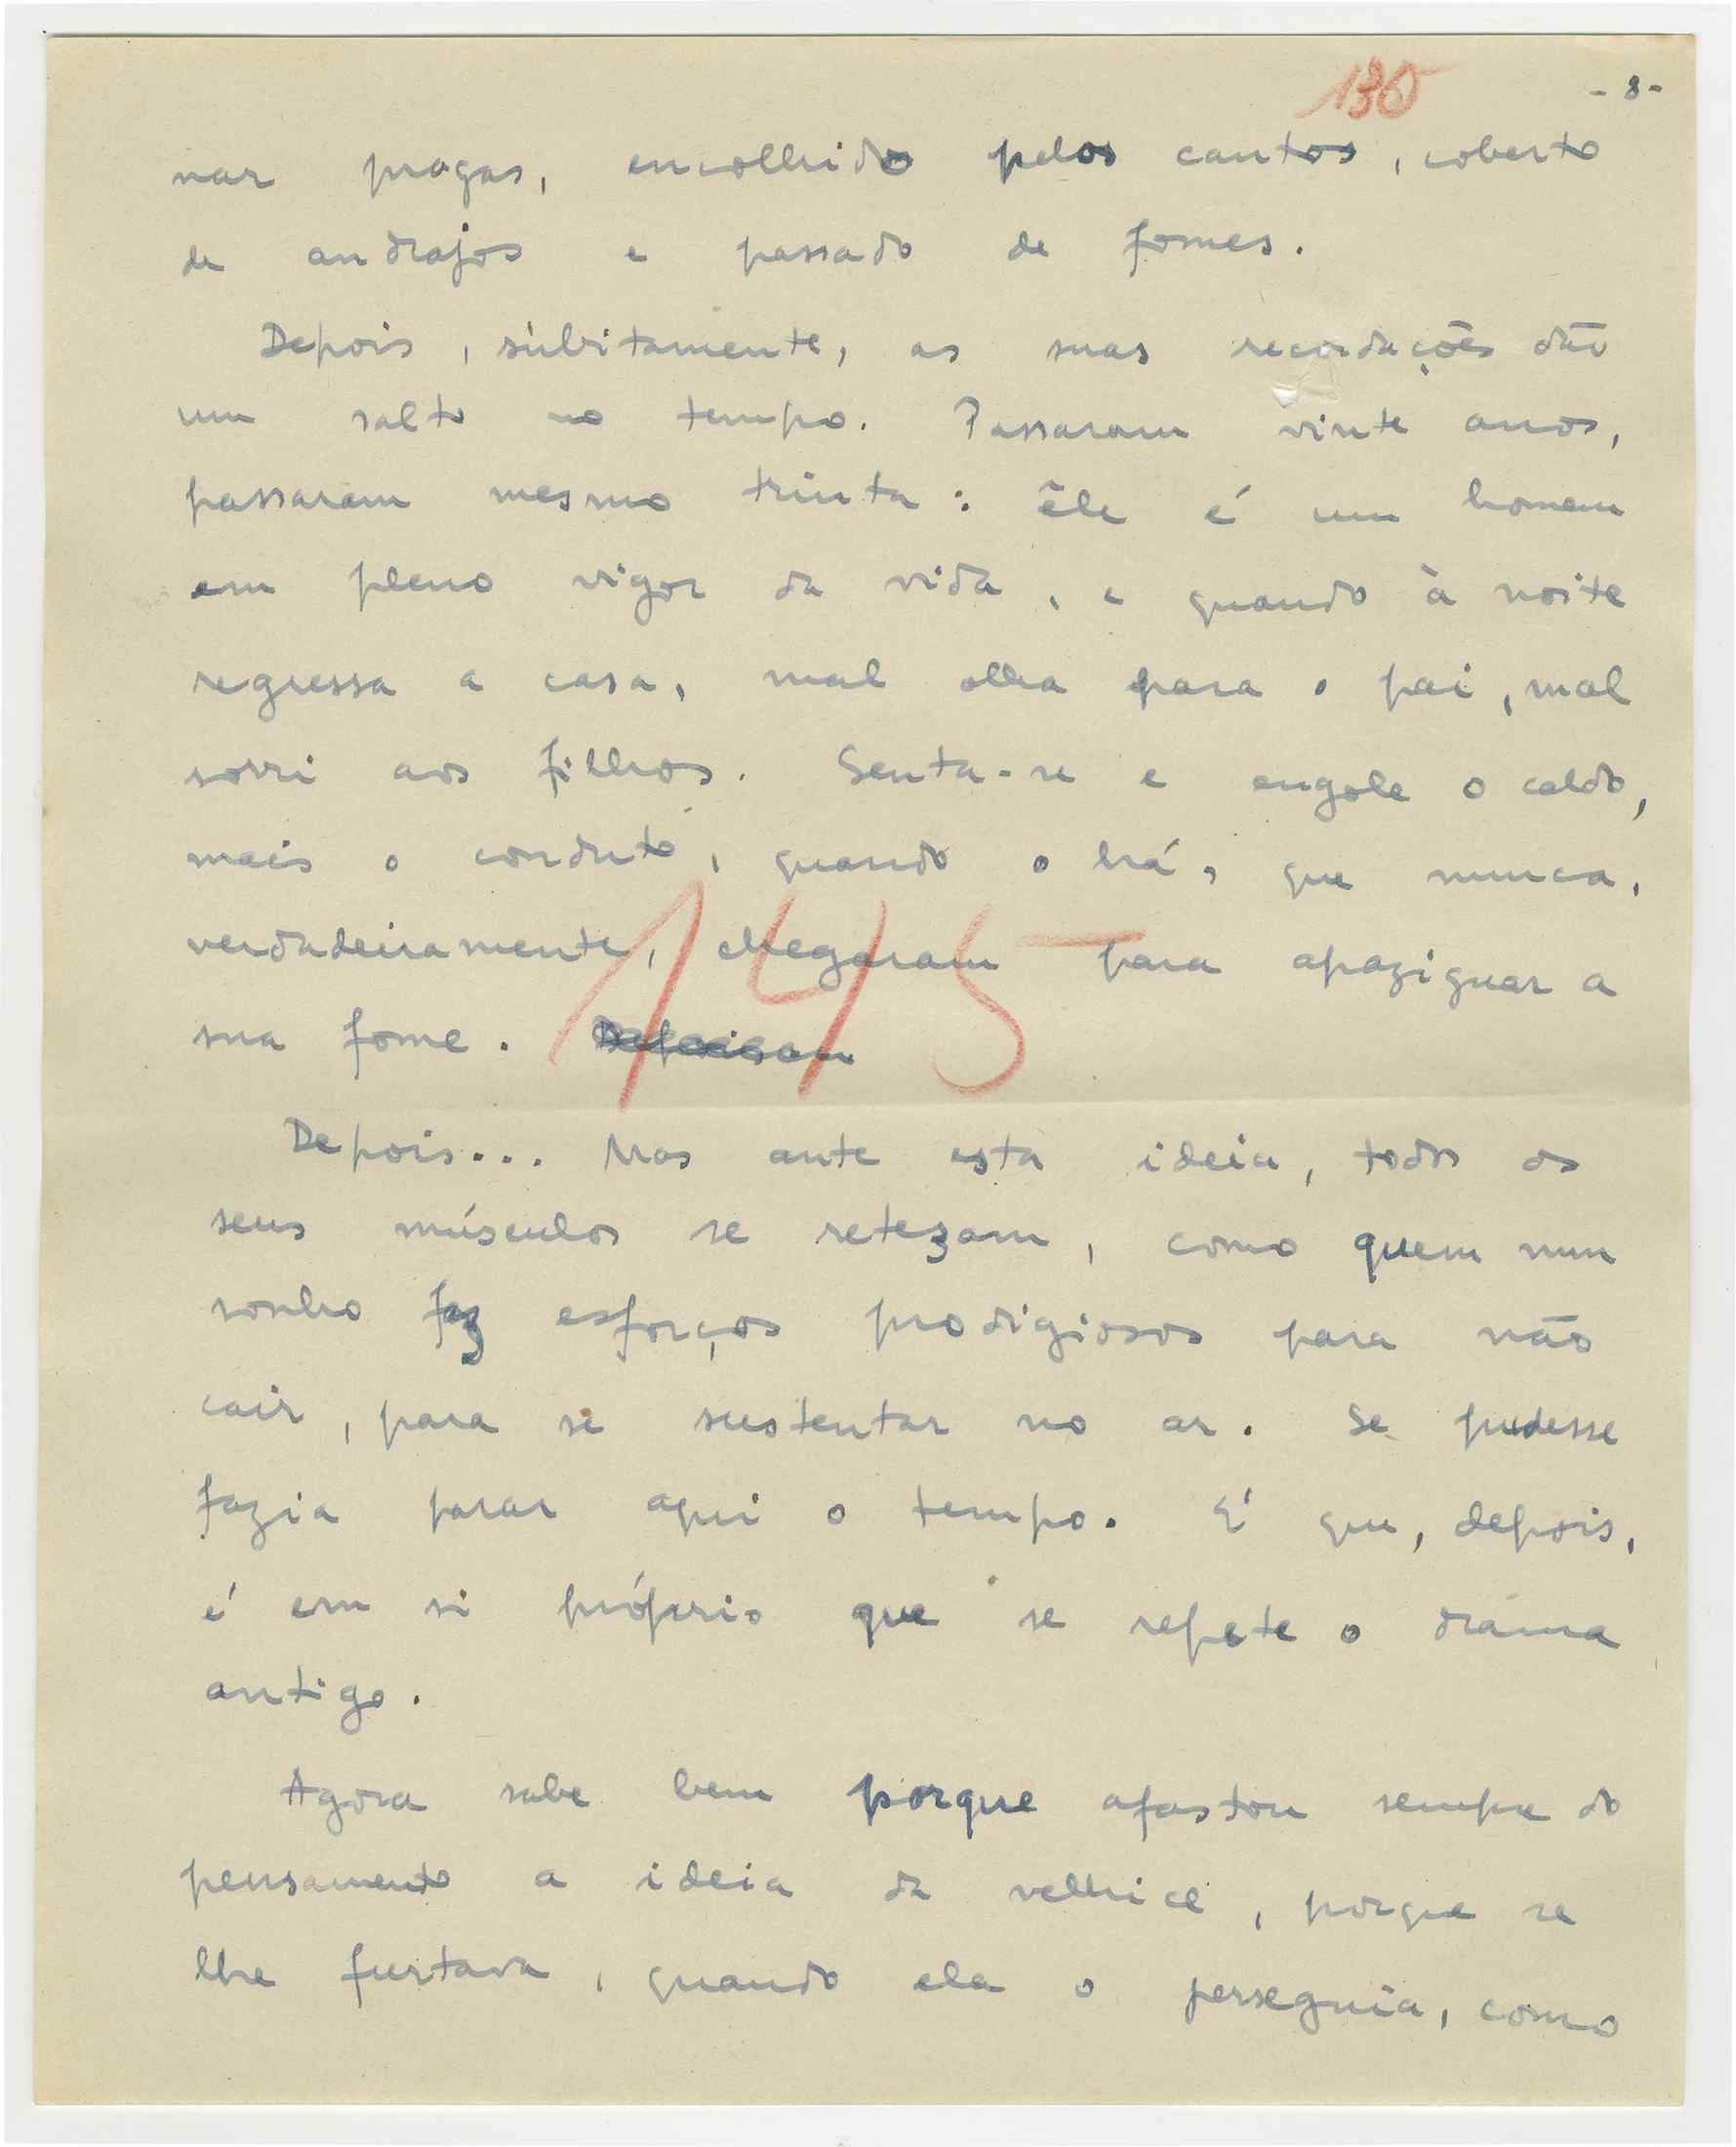 130 - 8 -
nar pragas, encolhido pelos cantos, coberto
de andrajos e passado de fomes.
Depois, sùbitamente, as suas recordações dão
um salto no tempo. Passaram vinte anos,
passaram mesmo trinta: êle é um homem
em pleno vigor da vida, e quando à noite
regressa a casa, mal olha para o pai, mal
sorri aos filhos. Senta-se e engole o caldo,
mais o conduto, quando o há, que nunca,
verdadeiramente, chegaram para apaziguar a
sua fome.
145
Depois... Mas ante esta ideia, todos os
seus músculos se retezam, como quem num
sonho faz esforços prodigiosos para não
cair, para se sustentar no ar. Se pudesse
fazia parar aqui o tempo. É que, depois,
é em si próprio que se repete o drama
antigo.
Agora sabe bem porque afastou sempre do
pensamento a ideia da velhice, porque se
lhe furtava, quando ela o perseguia, como